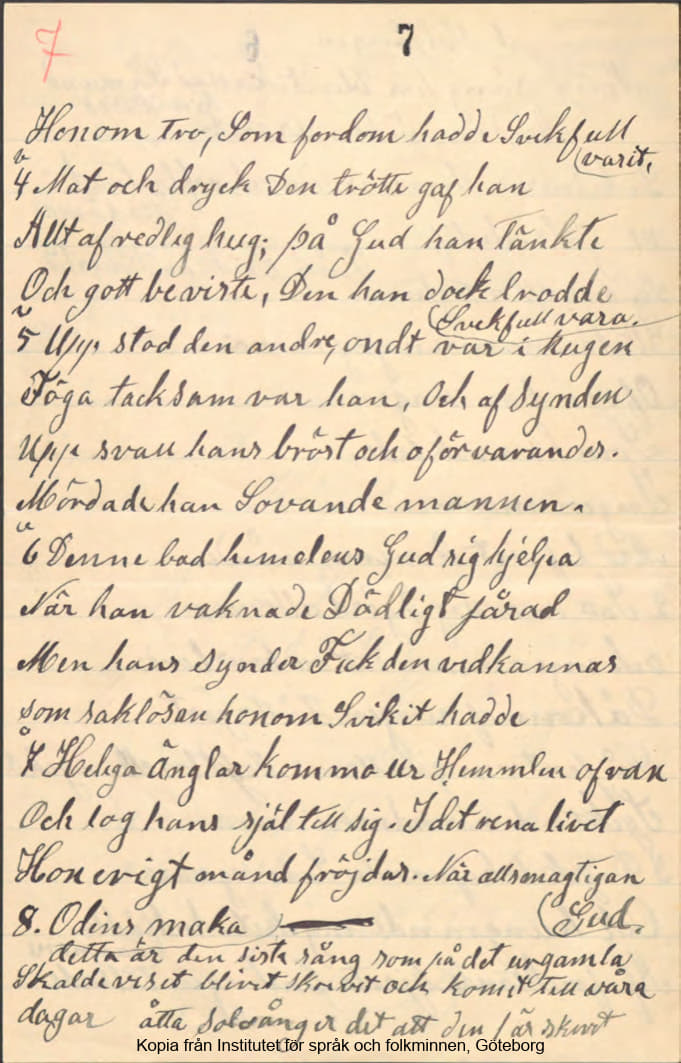 7 7
Honom tro, Som fordom hadde Svekfull
(varit,
v
4 Mat och dryck Den trötte gaf han
Allt af redlig hug; på Gud han tänkte
Och gott beviste, Den han dock trodde
(Svekfull vara.
v
5 Upp stod den andre, ondt var i hugen
Föga tacksam var han, Och af Synden
Upp svall hans bröst och oförvarandes.
Mördade han Sovande mannen.
v
6 Denne bad himelens Gud sig hjelpa
När han vaknade Dödligt sårad
Men hans Synder Fick den vidkannas
som saklösan honom Svikit hadde
7 Heliga Änglar komma ur Himmlen ofvan
Och tog hans själ till sig. I det rena livet
Hon evigt månd fröjdas. När allsmagtigan
(Gud.
8. Odins maka
detta är den siste sång som på det urgamla
Skaldeviset blivit skrevit och komit till våra
dagar åtta Solsånger det att den
Kopia från Institutet för språk och folkminnen, Göteborg